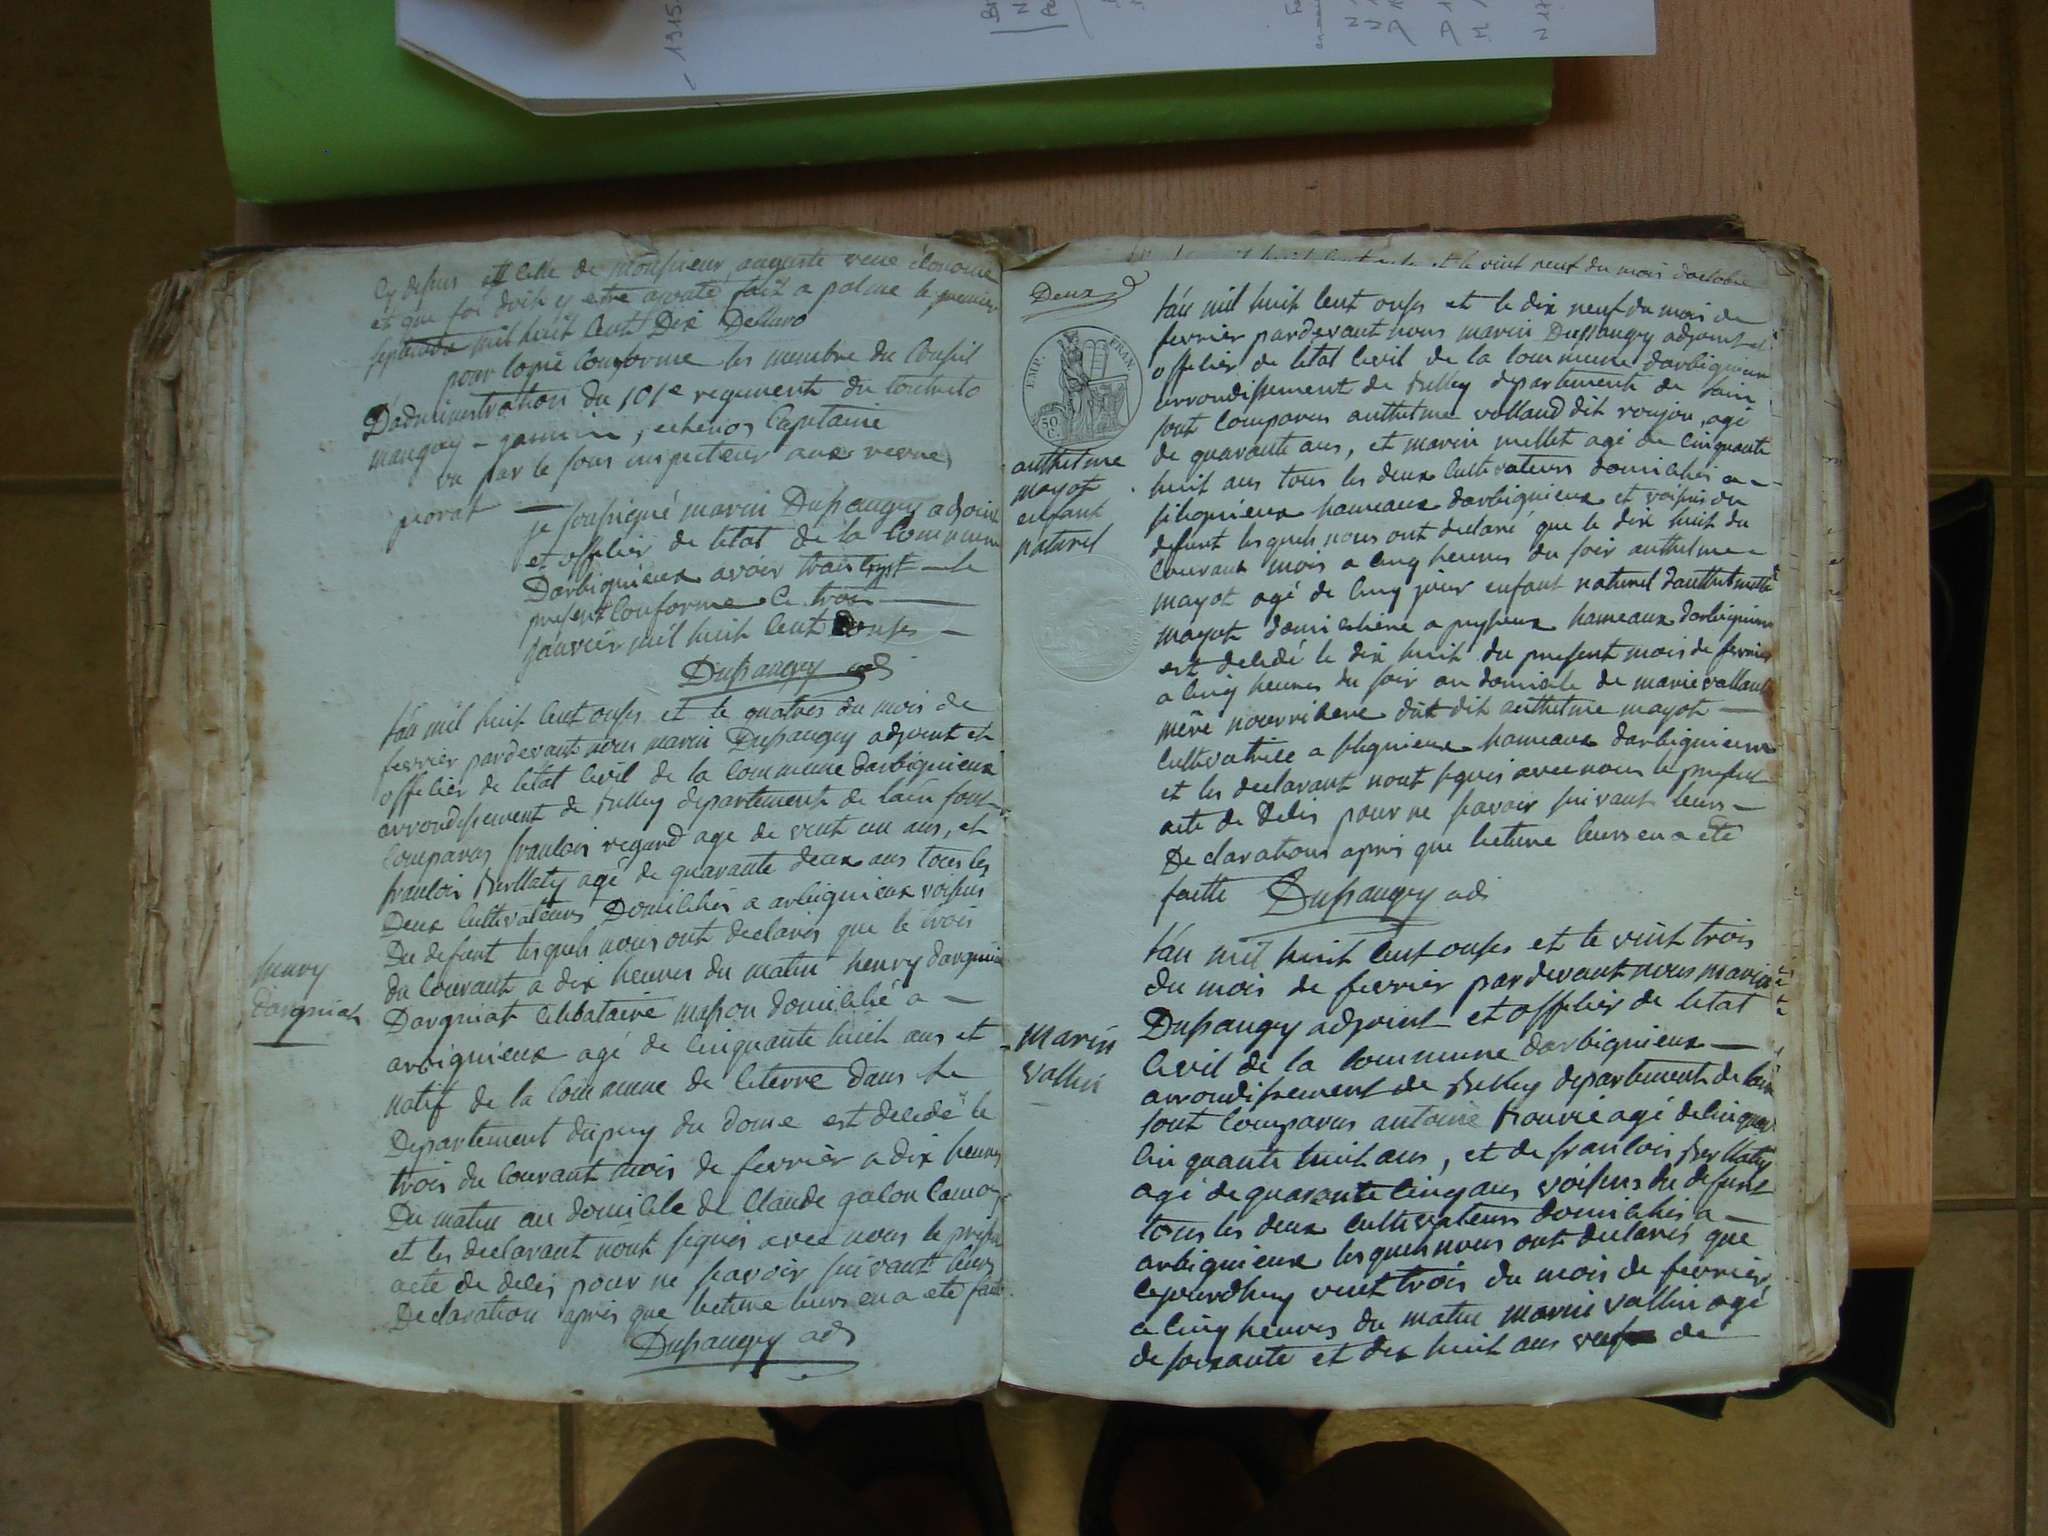 cy desus est celle de monsieur auguste rene econome
et que foi doit y etre ajouté fait a palme le premier
septembre mil huit cent Dix
pour copie conforme les membre du Conseil
Dadministration du 101e regiment
Capitaine
vu par le sous inspecteur aux revues
je sousigné marin Dussaugey adjoint
et officier de letat de la Commune
Darbignieux avoir transcryt le
present Conforme ce trois
janvier mil huit cent onse
Dussaugey adj
lan mil huit cent onse et le quatres du mois de
fevrier pardevant nous marin Dussaugey adjoint et
officier de letat civil de la Commune darbignieux
arrondissement de belley departement de lain sont
comparus francois regard age de vint un ans, et
francois berllaty agé de quarante deux ans tous les
Deux Cultivateurs Domiciliés a arbignieux voisins
Du defunt lesquels nous ont declarés que le trois
du courant a dix heures du matin henry dargniat
Dargniat celibataire masson domicilié a
arbignieux agé de cinquante huit ans et
natif de la commune de
dans le
Departement dupuy du dome est decedé le
trois du courant mois de fevrier a dix heures
Du matin au domicile de Claude galon
et les declarant nont signés avec nous le present
acte de deces pour ne savoir suivant leurs
Declaration apres que lecture leurs en a eté faite
Dussaugey adj
henry
dargniat
Deux
EMP. FRAN.
50 C.
anthelme
mayot
enfant
naturel
marin
vallin
et le vint neuf du mois doctobre
lan mil huit cent onse et le dix neuf du mois de
fevrier pardevant nous marin Dussaugey adjoint et
officier de letat civil de la commune darbignieux
arrondissement de belley departement de lain
sont comparus anthelme volland dit roujou, agé
de quarante ans, et marin mellet agé de cinquante
huit ans tous les deux cultivateurs domiciliés a
slignieux hameaux darbignieux et voisins du
defunt lesquels nous ont declaré que le dix huit du
courant mois a cinq heures du soir anthelme
mayot agé de cinq jour enfant naturel danthelmette
mayot domiciliere a peysieux hameaux darbignieux
est decedé le dix huit du present mois de fevrier
a cinq heures du soir au domicile de marie vallant
mere nourriciere dudit anthelme mayot
cultivatrice a slignieux hameaux darbignieux
et les declarant nont signés avec nous le present
acte de deces pour ne savoir suivant leurs
Declarations apres que lecture leurs en a eté
faitte Dussaugey adj
lan mil huit cent onse et le vint trois
du mois de fevrier pardevant nous marin
Dussaugey adjoint et officier de letat
civil de la commune darbignieux
arrondissement de Belley departement de lain
sont comparus antoine bouvié agé de cinquan
cinquante huit ans, et de francois berllaty
agé de quarante cinq ans voisins du defunt
tous les deux cultivateurs domiciliés a
arbignieux lesquels nous ont declarés que
cejourdhuy vint trois du mois de fevrier
a cinq heures du matin marin vallin agé
de soixante et dix huit ans veuf de